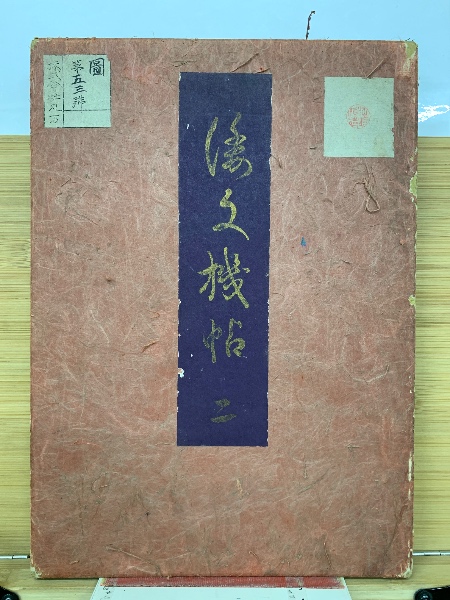 倭文機帖 二
圖
第五三號